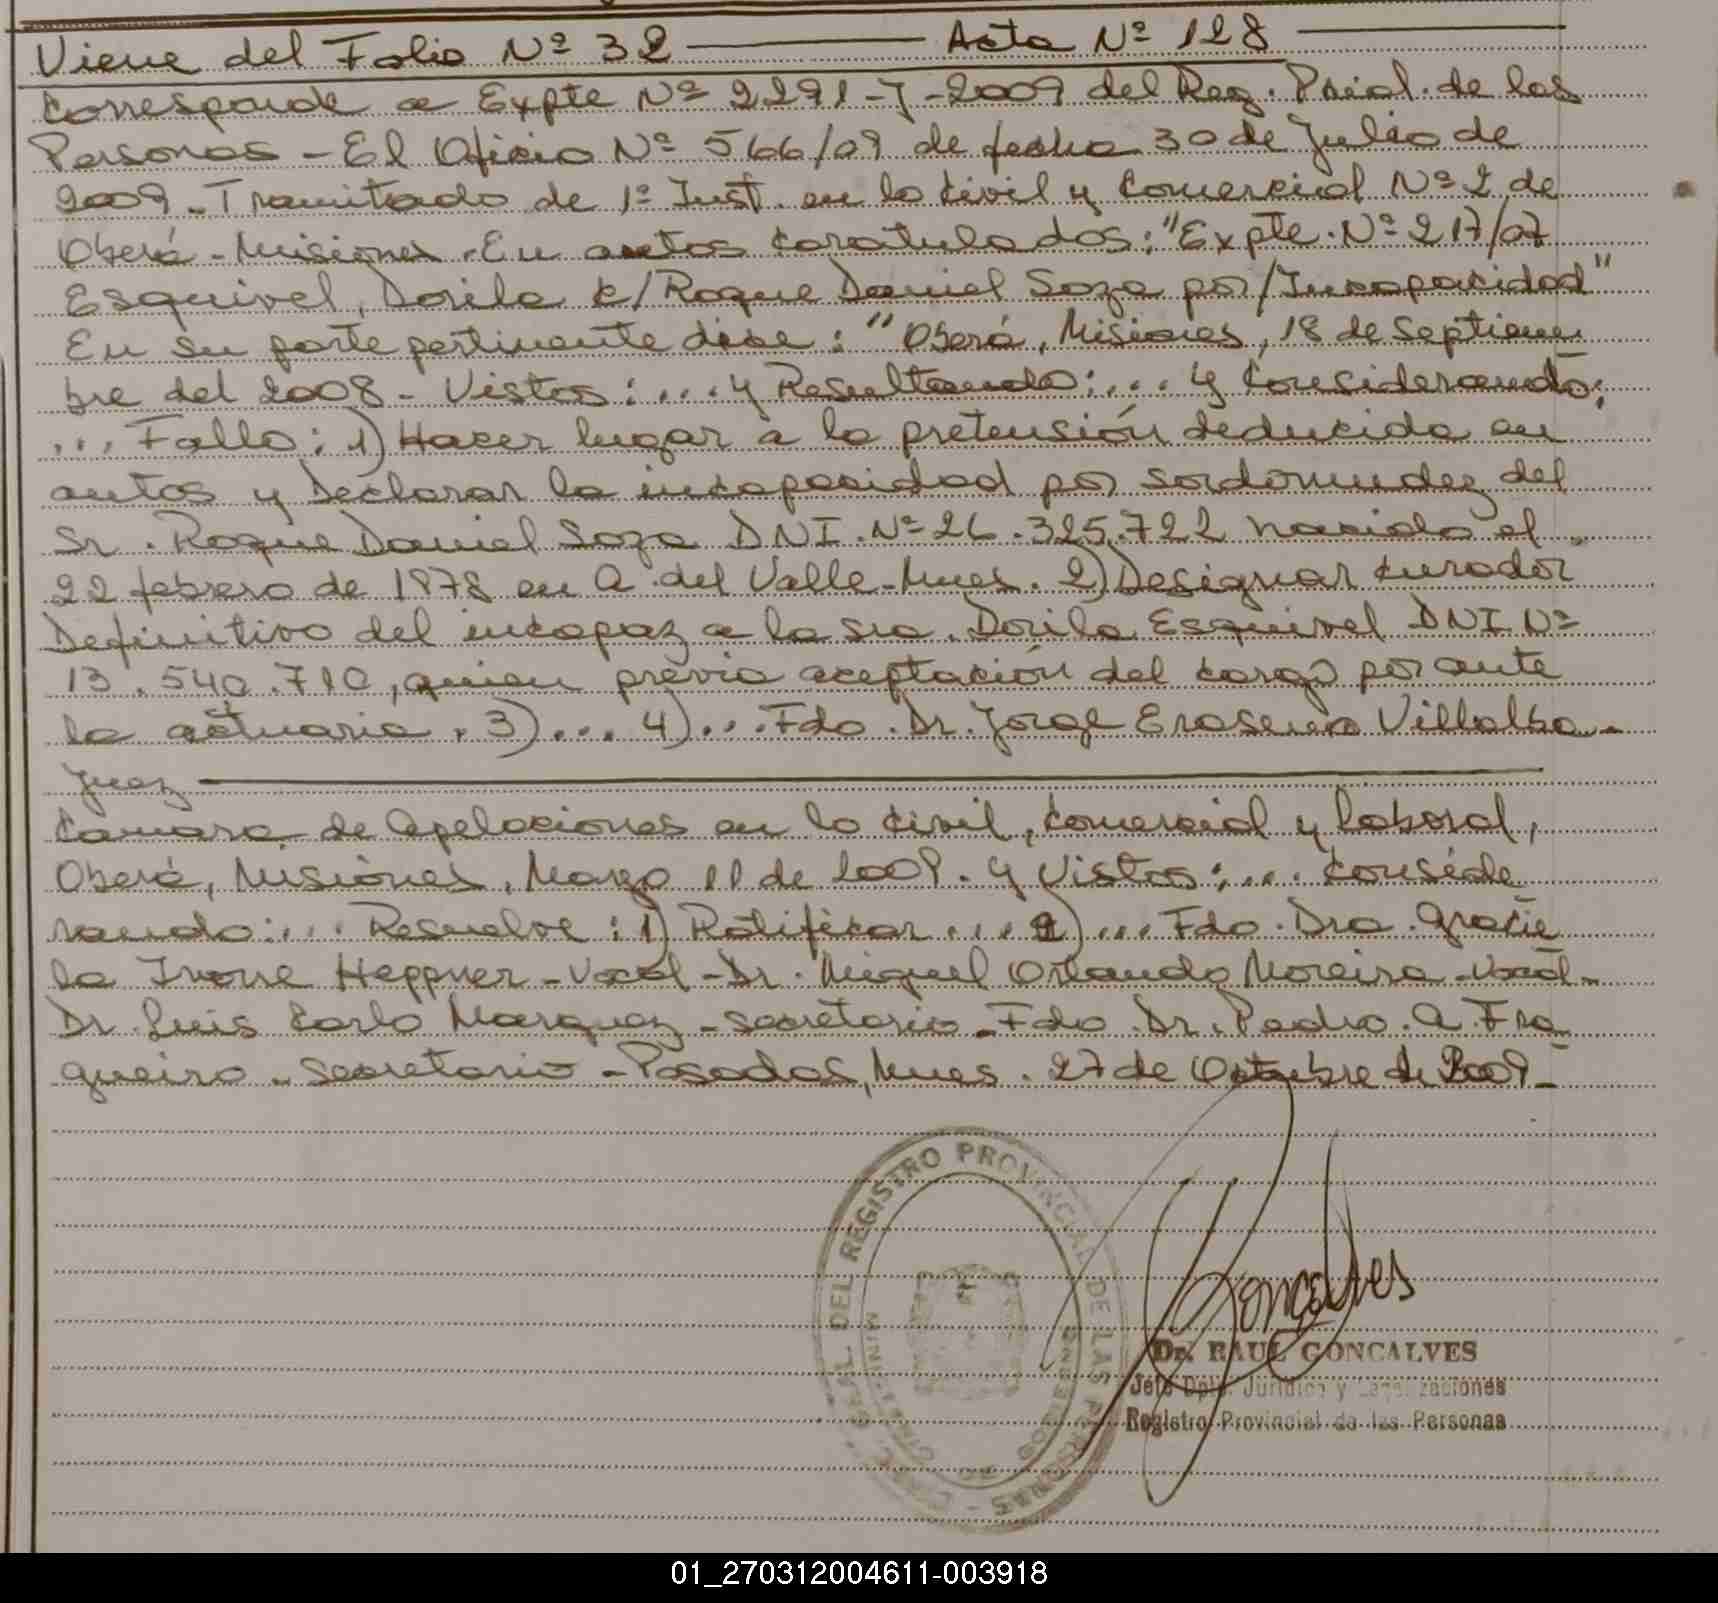 Viene del Folio Nº 32 — Acta Nº 128 —
Corresponde a Expte Nº 2291-J-2009 del Reg. Pcial. de las
Personas - El Oficio Nº 566/09 de fecha 30 de Julio de
2009. Tramitado de 1º Inst. en lo Civil y Comercial Nº 2 de
Oberá - Misiones. En autos caratulados: "Expte. Nº 217/07
Esquivel, Dorila c/Roque Daniel Soza por/Incapacidad"
En su parte pertinente dice: "Oberá, Misiones, 18 de Septiem
bre del 2008 - Vistos: ... y Resultando: ... y Considerando:
... Fallo: 1) Hacer lugar a la pretensión deducida en
autos y Declarar la incapacidad por sordomudez del
Sr. Roque Daniel Soza DNI. Nº 26.325.722 nacido el
22 febrero de 1978 en A. del Valle - Mnes. 2) Designar Curador
Definitivo del incapaz a la sra. Dorila Esquivel DNI Nº
13.540.710, quien previa aceptación del cargo por ante
la actuaria. 3)... 4)... Fdo. Dr. Jorge Erasmo Villalba -
Juez —
Camara de Apelaciones en lo Civil, Comercial y Laboral,
Oberá, Misiones, Marzo 11 de 2009. y Vistos: ... Conside
rando: ... Resuelve: 1) Ratificar ... 2)... Fdo. Dra. Gracie
la Ivone Heppner - Vocal - Dr. Miguel Orlando Moreira - Vocal -
Dr. Luis Carlo Marquez - secretario - Fdo. Dr. Pedro. A. Fra
gueiro - secretario - Posadas, Mnes. 27 de Octubre de 2009 -
DEL REGISTRO PROVINCIAL DE LAS PERSONAS
MINISTERIO DE GOBIERNO
Goncalves
Dr. RAUL GONCALVES
Jefe Dpto. Jurídico y Legalizaciones
Registro Provincial de las Personas
01_270312004611-003918